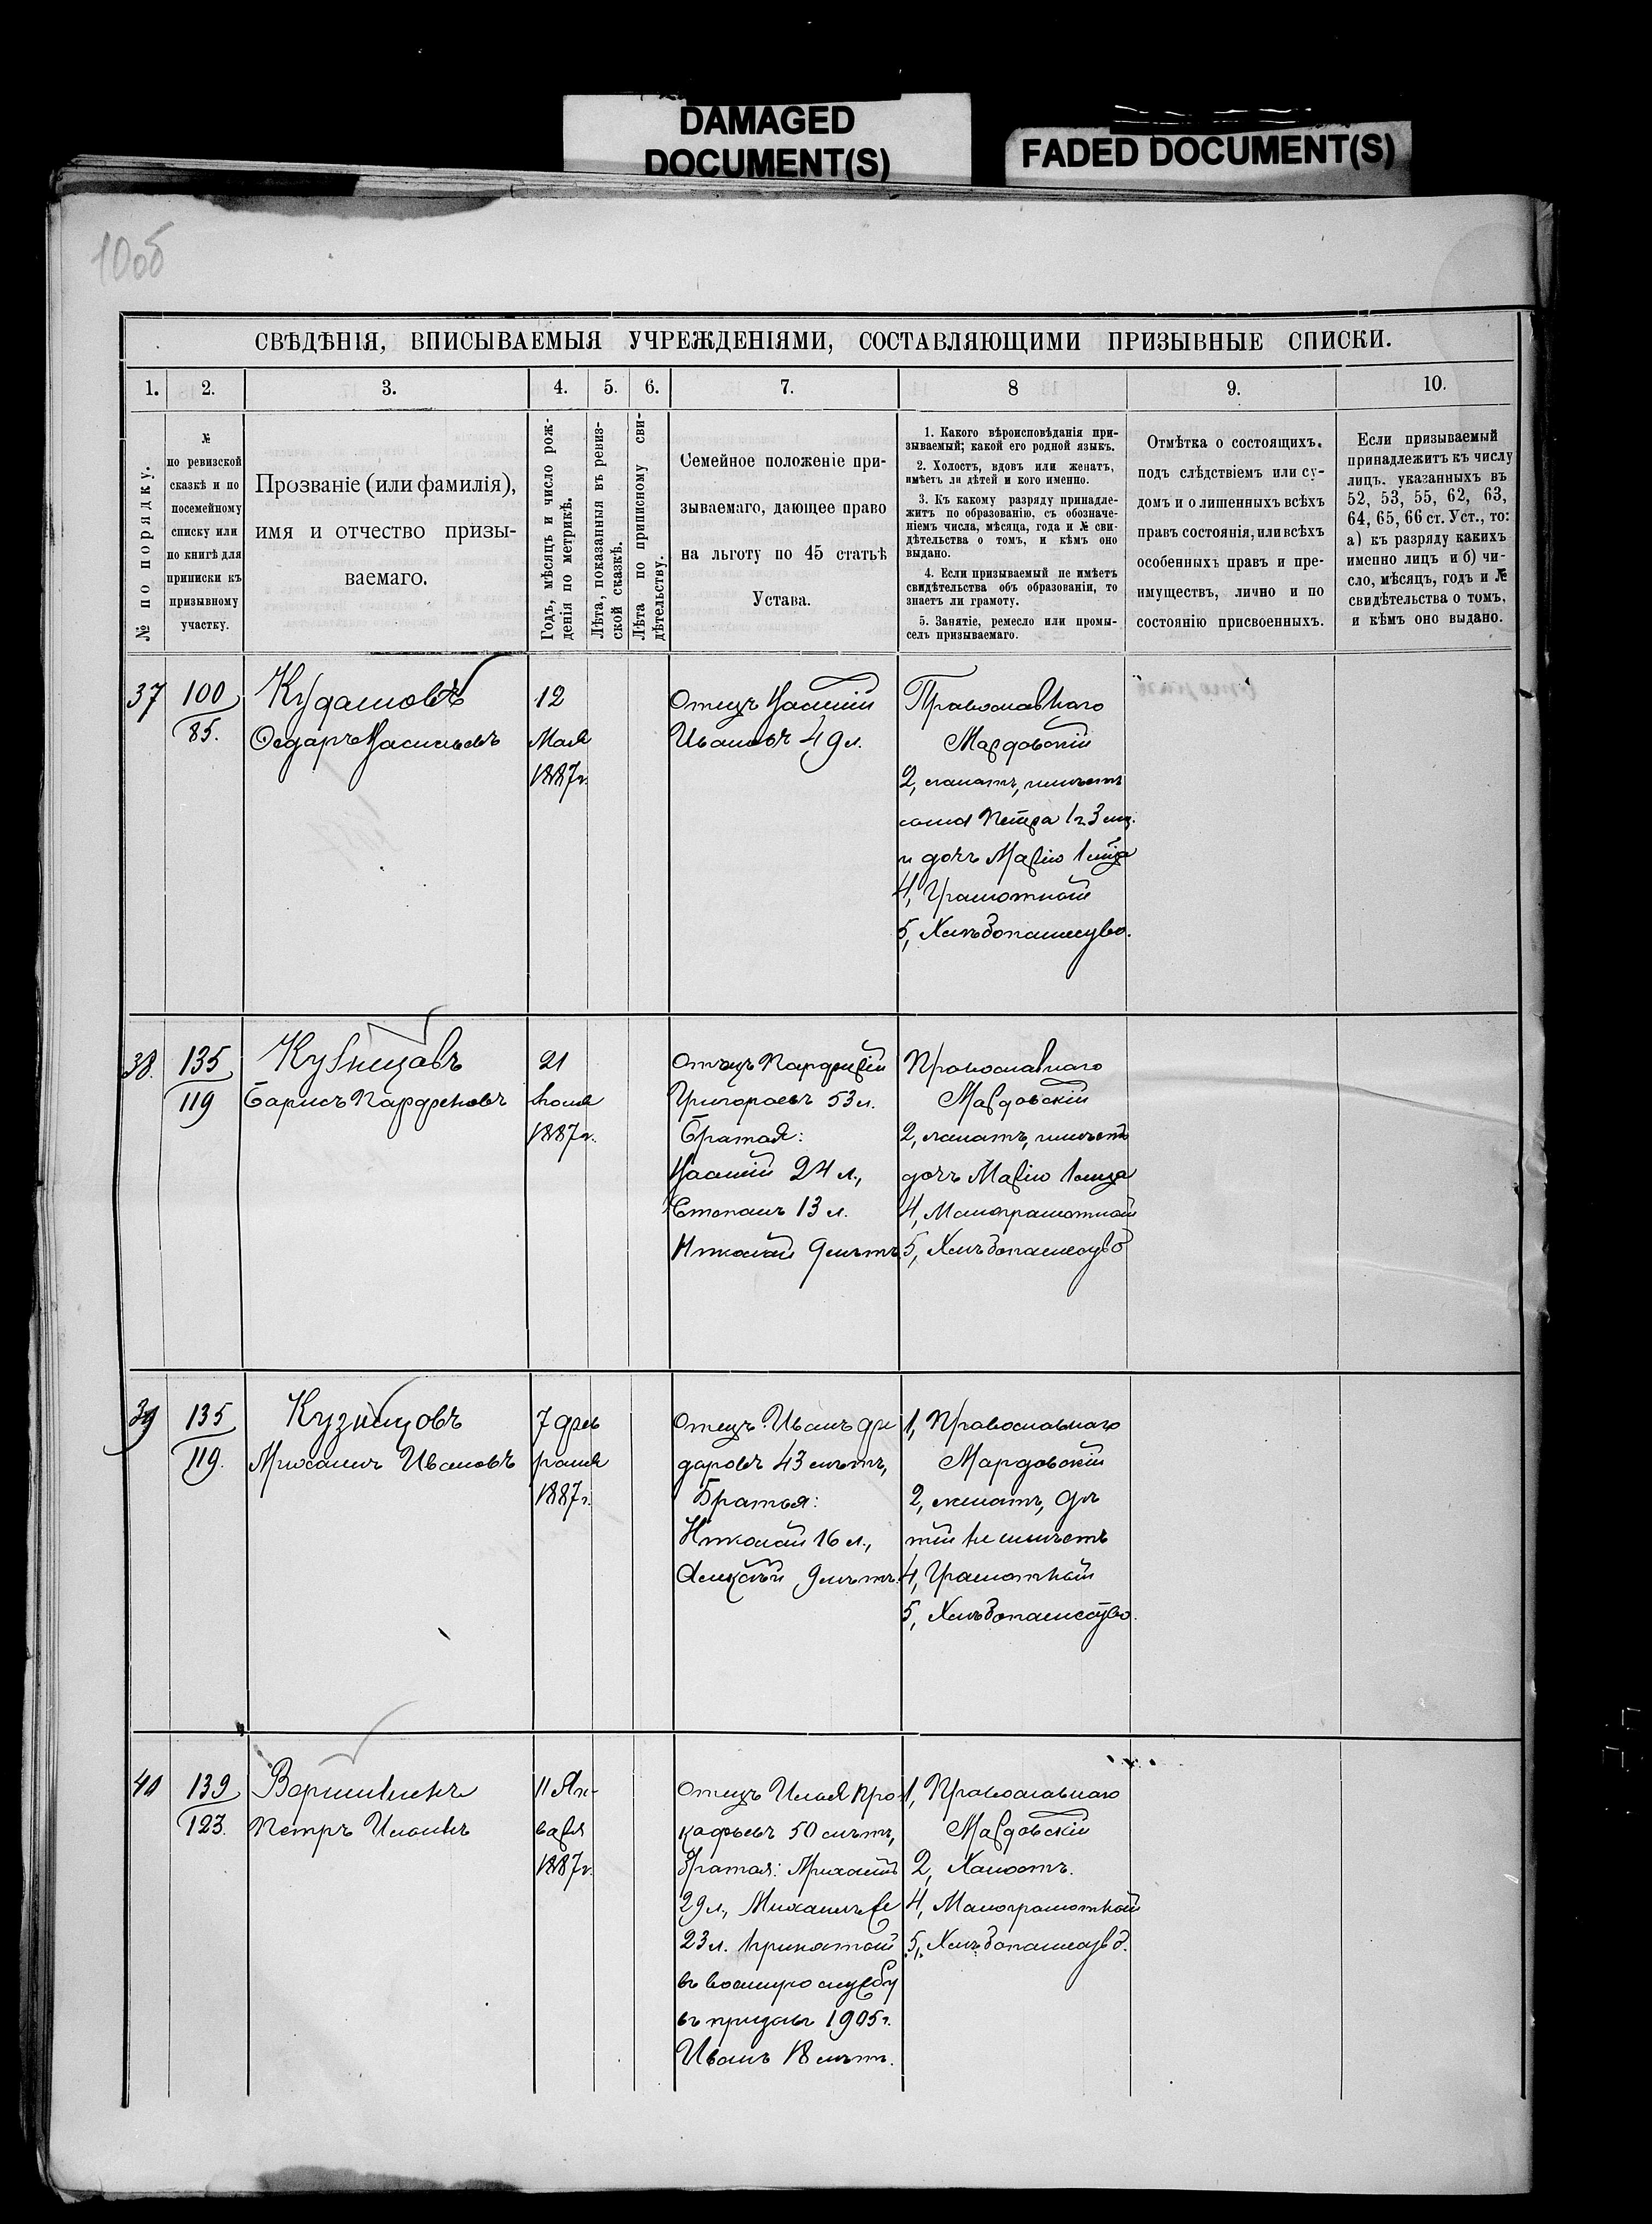 DAMAGED
DOCUMENT(S)
FADED DOCUMENT(S)
10об
СВѢДѢНІЯ, ВПИСЫВАЕМЫЯ УЧРЕЖДЕНІЯМИ, СОСТАВЛЯЮЩИМИ ПРИЗЫВНЫЕ СПИСКИ.
1. 2. 3. 4. 5. 6. 7. 8 9. 10.
№ по порядку.
№
по ревизской
сказкѣ и по
посемейному
списку или
по книгѣ для
приписки къ
призывному
участку.
Прозваніе (или фамилія),
имя и отчество призы-
ваемаго.
Годъ, мѣсяцъ и число рож-
денія по метрикѣ.
Лѣта, показанныя въ ревиз-
ской сказкѣ.
Лѣта по приписному сви-
дѣтельству.
Семейное положеніе при-
зываемаго, дающее право
на льготу по 45 статьѣ
Устава.
1. Какого вѣроисповѣданія при-
зываемый; какой его родной языкъ.
2. Холостъ, вдовъ или женатъ,
имѣетъ ли дѣтей и кого именно.
3. Къ какому разряду принадле-
житъ по образованію, съ обозначе-
ніемъ числа, мѣсяца, года и № сви-
дѣтельства о томъ, и кѣмъ оно
выдано.
4. Если призываемый не имѣетъ
свидѣтельства объ образованіи, то
знаетъ ли грамоту.
5. Занятіе, ремесло или промы-
селъ призываемаго.
Отмѣтка о состоящихъ.
подъ слѣдствіемъ или су-
домъ и о лишенныхъ всѣхъ
правъ состоянія, или всѣхъ
особенныхъ правъ и пре-
имуществъ, лично и по
состоянію присвоенныхъ.
Если призываемый
принадлежитъ къ числу
лицъ. указанныхъ въ
52, 53, 55, 62, 63,
64, 65, 66 ст. Уст., то:
а) къ разряду какихъ
именно лицъ и б) чи-
сло, мѣсяцъ, годъ и №
свидѣтельства о томъ,
и кѣмъ оно выдано.
37
100
85.
Кудашовъ
Ѳедоръ Васильевъ
12
Мая
1887г.
Отецъ Василій
Ивановъ 49 л.
Православнаго
Мордовскій
2, женатъ, имѣетъ
сына Петра 1 г 3 мц.
и дочь Марію 1 мца
4, Грамотный
5, Хлѣбопашество.
38.
135
119
Кузнецовъ
Борисъ Парфеновъ
21
Іюля
1887г.
Отецъ Парфений
Григорьевъ 53 л.
Братья:
Василій 24 л.,
Степанъ 13 л.
Николай 9 лѣтъ.
Православнаго
Мордовскій
2, женатъ, имѣетъ
дочь Марію 1 мца
4, Малограмотный
5, Хлѣбопашество
39
135
119.
Кузнецовъ
Михаилъ Ивановъ
7 фев
раля
1887г.
Отецъ Иванъ Фе
доровъ 43 лѣтъ,
Братья:
Николай 16 л.,
Алексѣй 9 лѣтъ.
1, Православнаго
Мордовскій
2, женатъ, дѣ
тей не имѣетъ
4, Грамотный
5, Хлѣбопашество.
40
139
123.
Петръ Ильинъ
11 Ян-
варя
1887г.
Отецъ Илья Про-
кофьевъ 50 лѣтъ,
Братья: Михаилъ
29 л., Михаилъ 2й
23 л. принятый
въ военную службу
въ призывъ 1905 г.
Иванъ 18 лѣтъ.
1, Православнаго
Мордовскій
2, Холостъ.
4, Малограмотный
5, Хлѣбопашество.